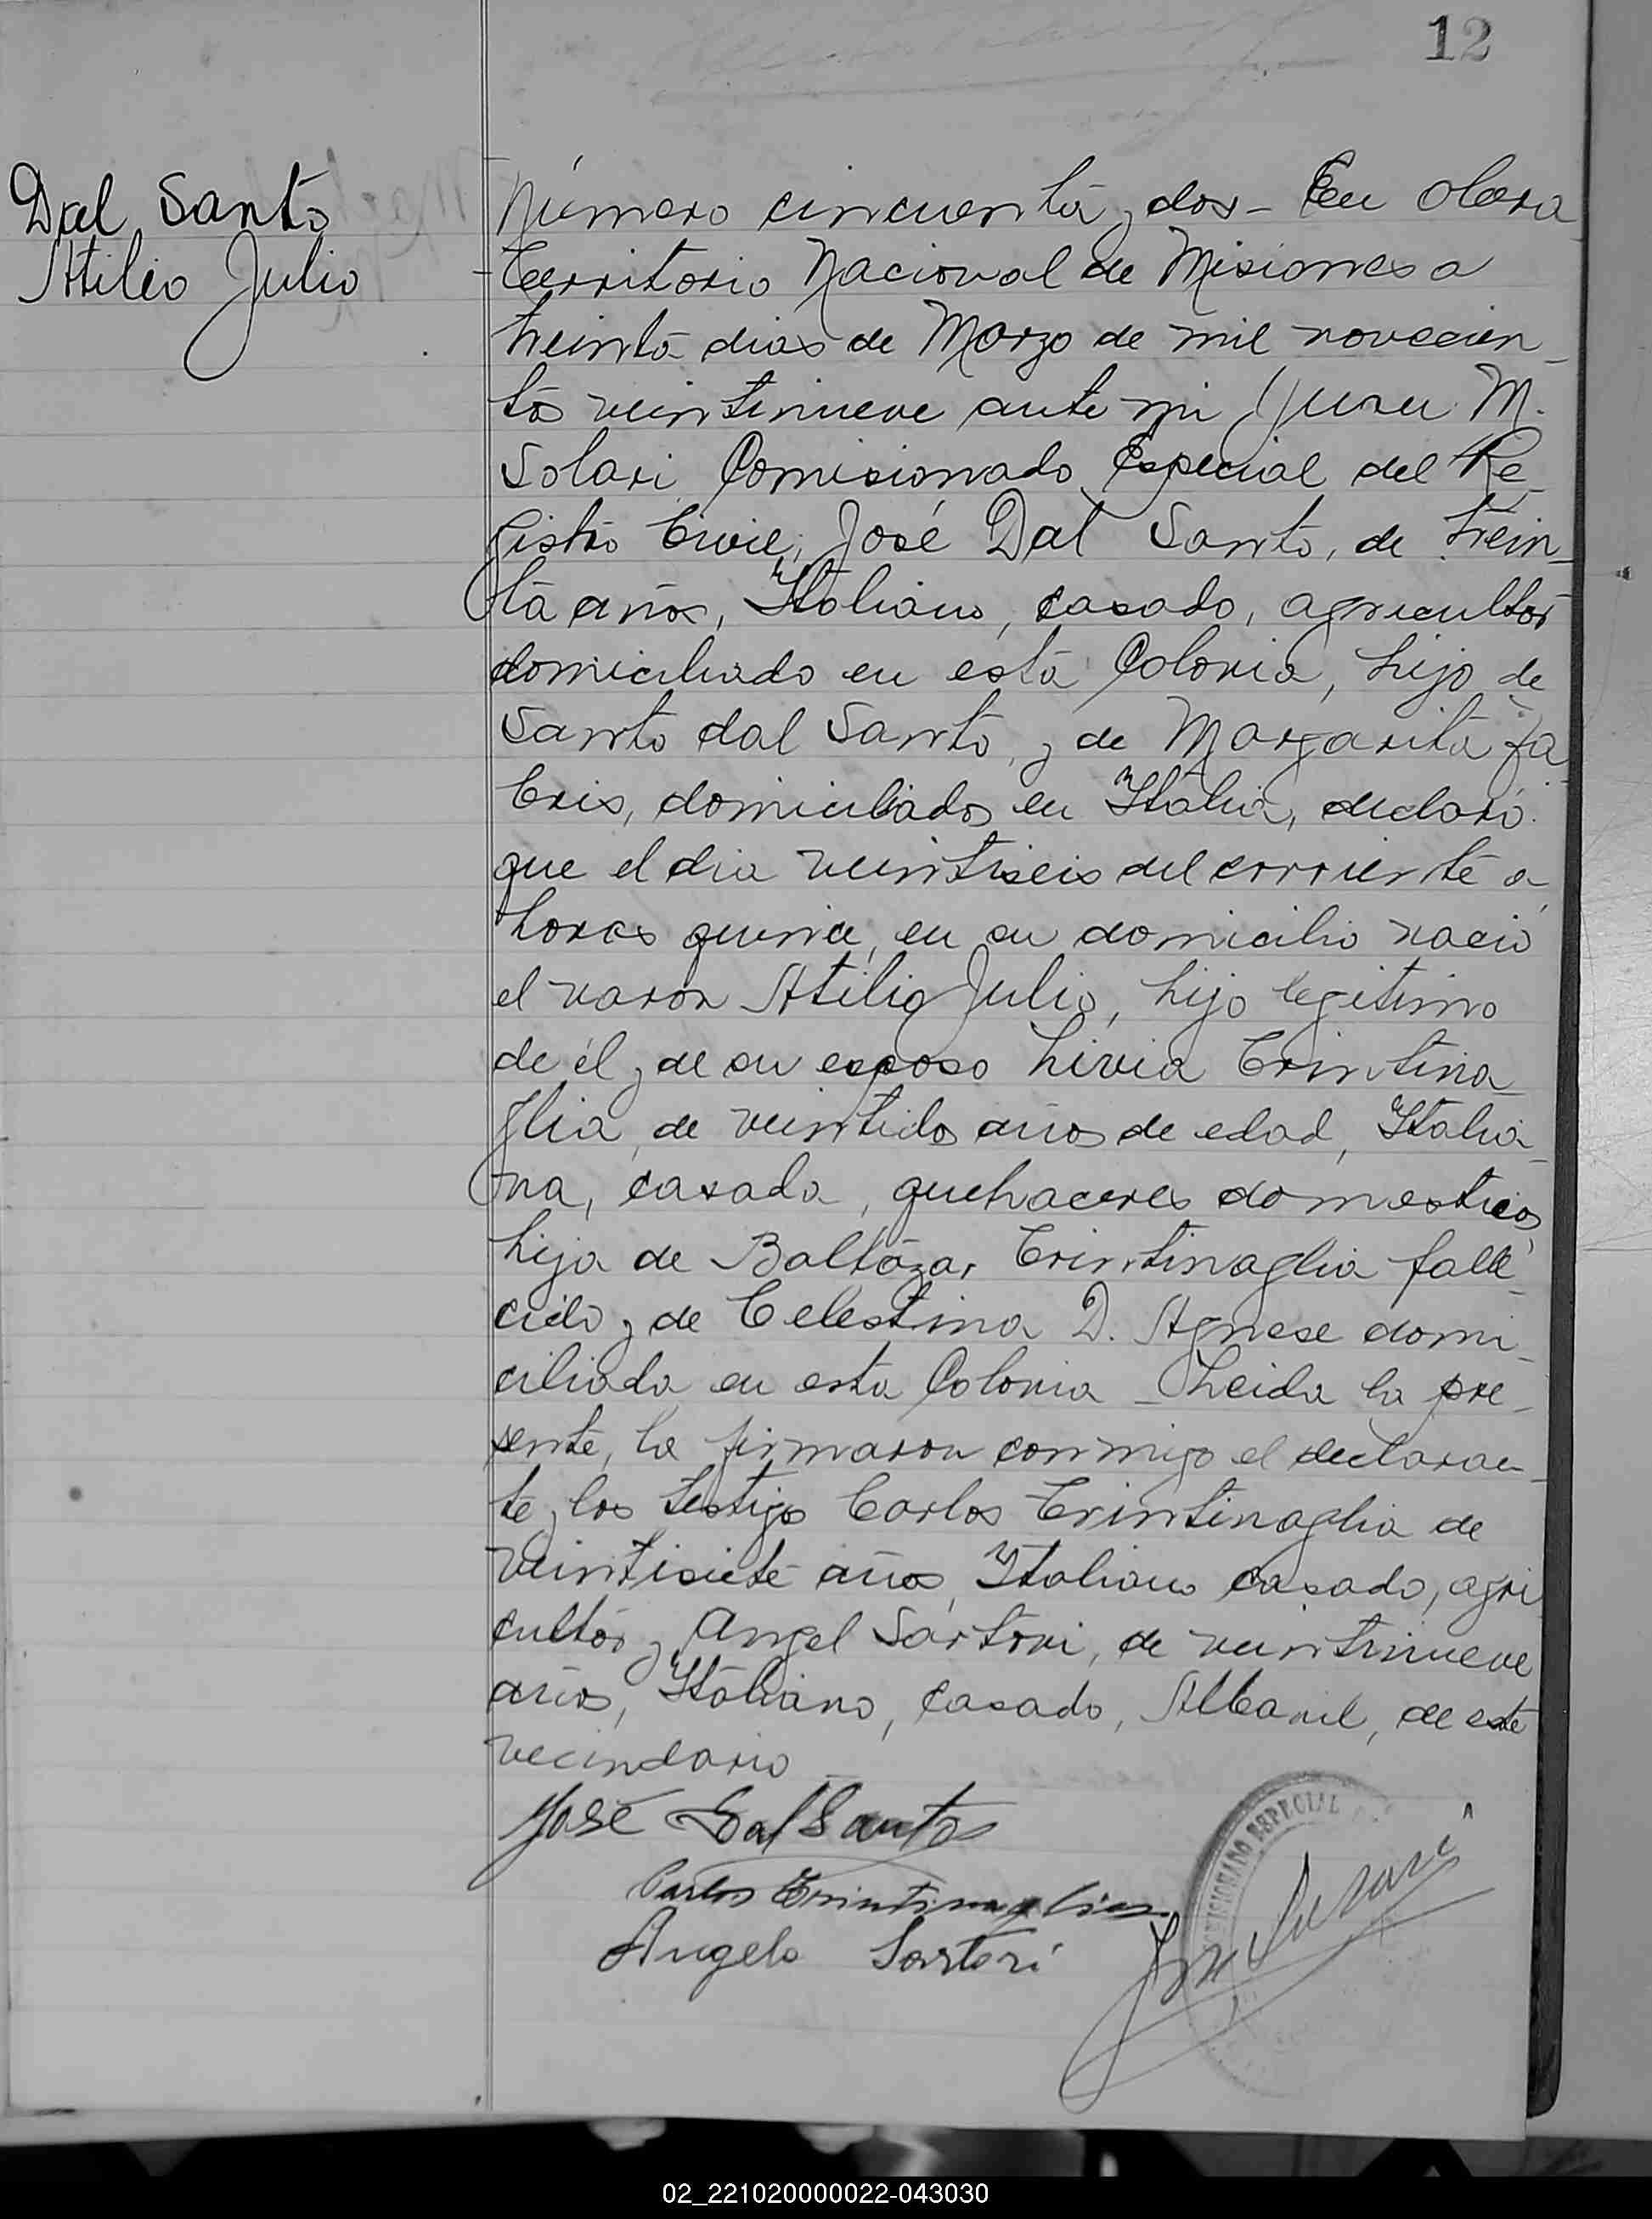 12
Dal Santo
Atilio Julio
Número cincuenta y dos - En Obera
Territorio Nacional de Misiones a
treinta dias de Marzo de mil novecien_
tos veintinueve ante mi Juan M.
Solari Comisionado Especial del Re_
gistro Civil, José Dal Santo, de trein_
ta años, Italiano, casado, agricultor
domiciliado en esta Colonia, hijo de
Santo dal Santo, y de Margarita Fa
bris, domiciliados en Italia, declaró
que el dia veintiseis del corriente a
horas quince, en su domicilio nació
el varon Atilio Julio, hijo legitimo
de él y de su esposa Livia Trintina_
glia, de veintidos años de edad, Italia_
na, casada, quehaceres domesticos,
hija de Baltázar Trintinaglia falle_
cido y de Celestina D. Agnese domi_
ciliada en esta Colonia _ Leida la pre_
sente, la firmaron conmigo el declaran_
te y los testigos Carlos Trintinaglia de
veintisiete años, Italiano casado, agri
cultor y Angel Sartori, de veintinueve
años, Italiano, casado, Albanil, de este
vecindario _
José Dal Santo
Carlos Trintinaglia
Angelo Sartori
COMISIONADO ESPECIAL
02_221020000022-043030